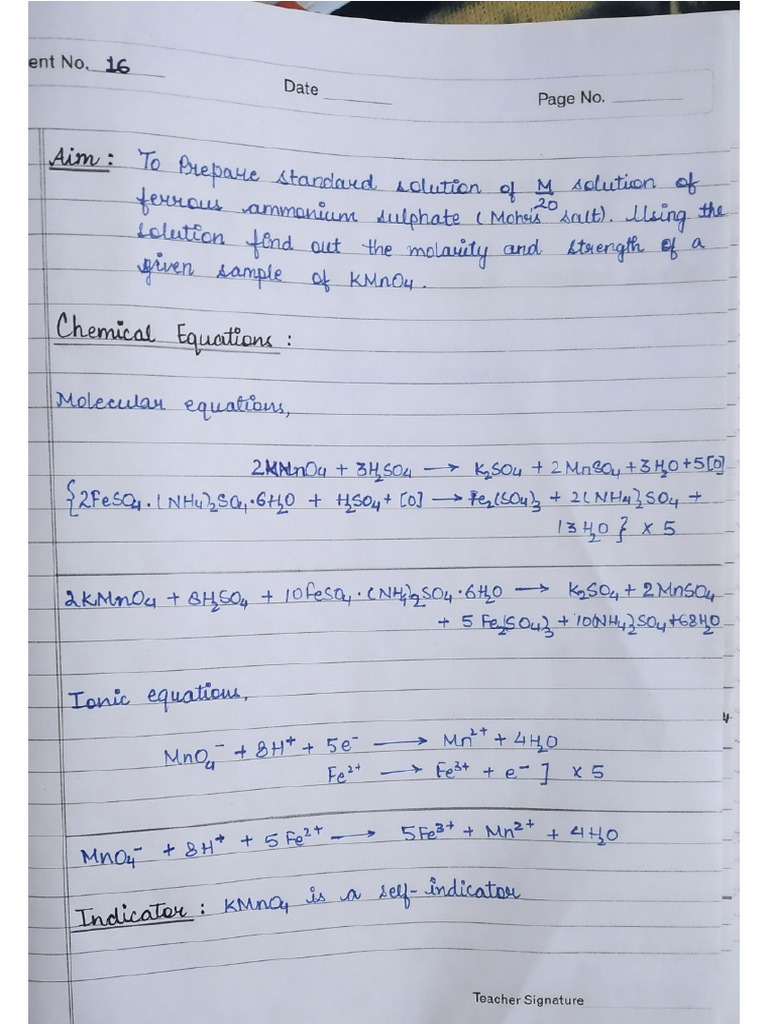 ent No. 16
Date
Page No.
Aim : To Prepare standard solution of M/20 solution of
ferrous ammonium sulphate (Mohris salt). Using the
solution find out the molarity and strength of a
given sample of KMnO4.
Chemical Equations :
Molecular equations,
2KMnO4 + 3H2SO4 → K2SO4 + 2MnSO4 + 3H2O + 5[O]
{2FeSO4·(NH4)2SO4·6H2O + H2SO4 + [O] → Fe2(SO4)3 + 2(NH4)2SO4 +
13H2O } x 5
2KMnO4 + 8H2SO4 + 10FeSO4·(NH4)2SO4·6H2O → K2SO4 + 2MnSO4
+ 5Fe2(SO4)3 + 10(NH4)2SO4 + 68H2O
Ionic equations,
MnO4⁻ + 8H⁺ + 5e⁻ → Mn²⁺ + 4H2O
Fe²⁺ → Fe³⁺ + e⁻ ] x 5
MnO4⁻ + 8H⁺ + 5Fe²⁺ → 5Fe³⁺ + Mn²⁺ + 4H2O
Indicator : KMnO4 is a self-indicator
Teacher Signature